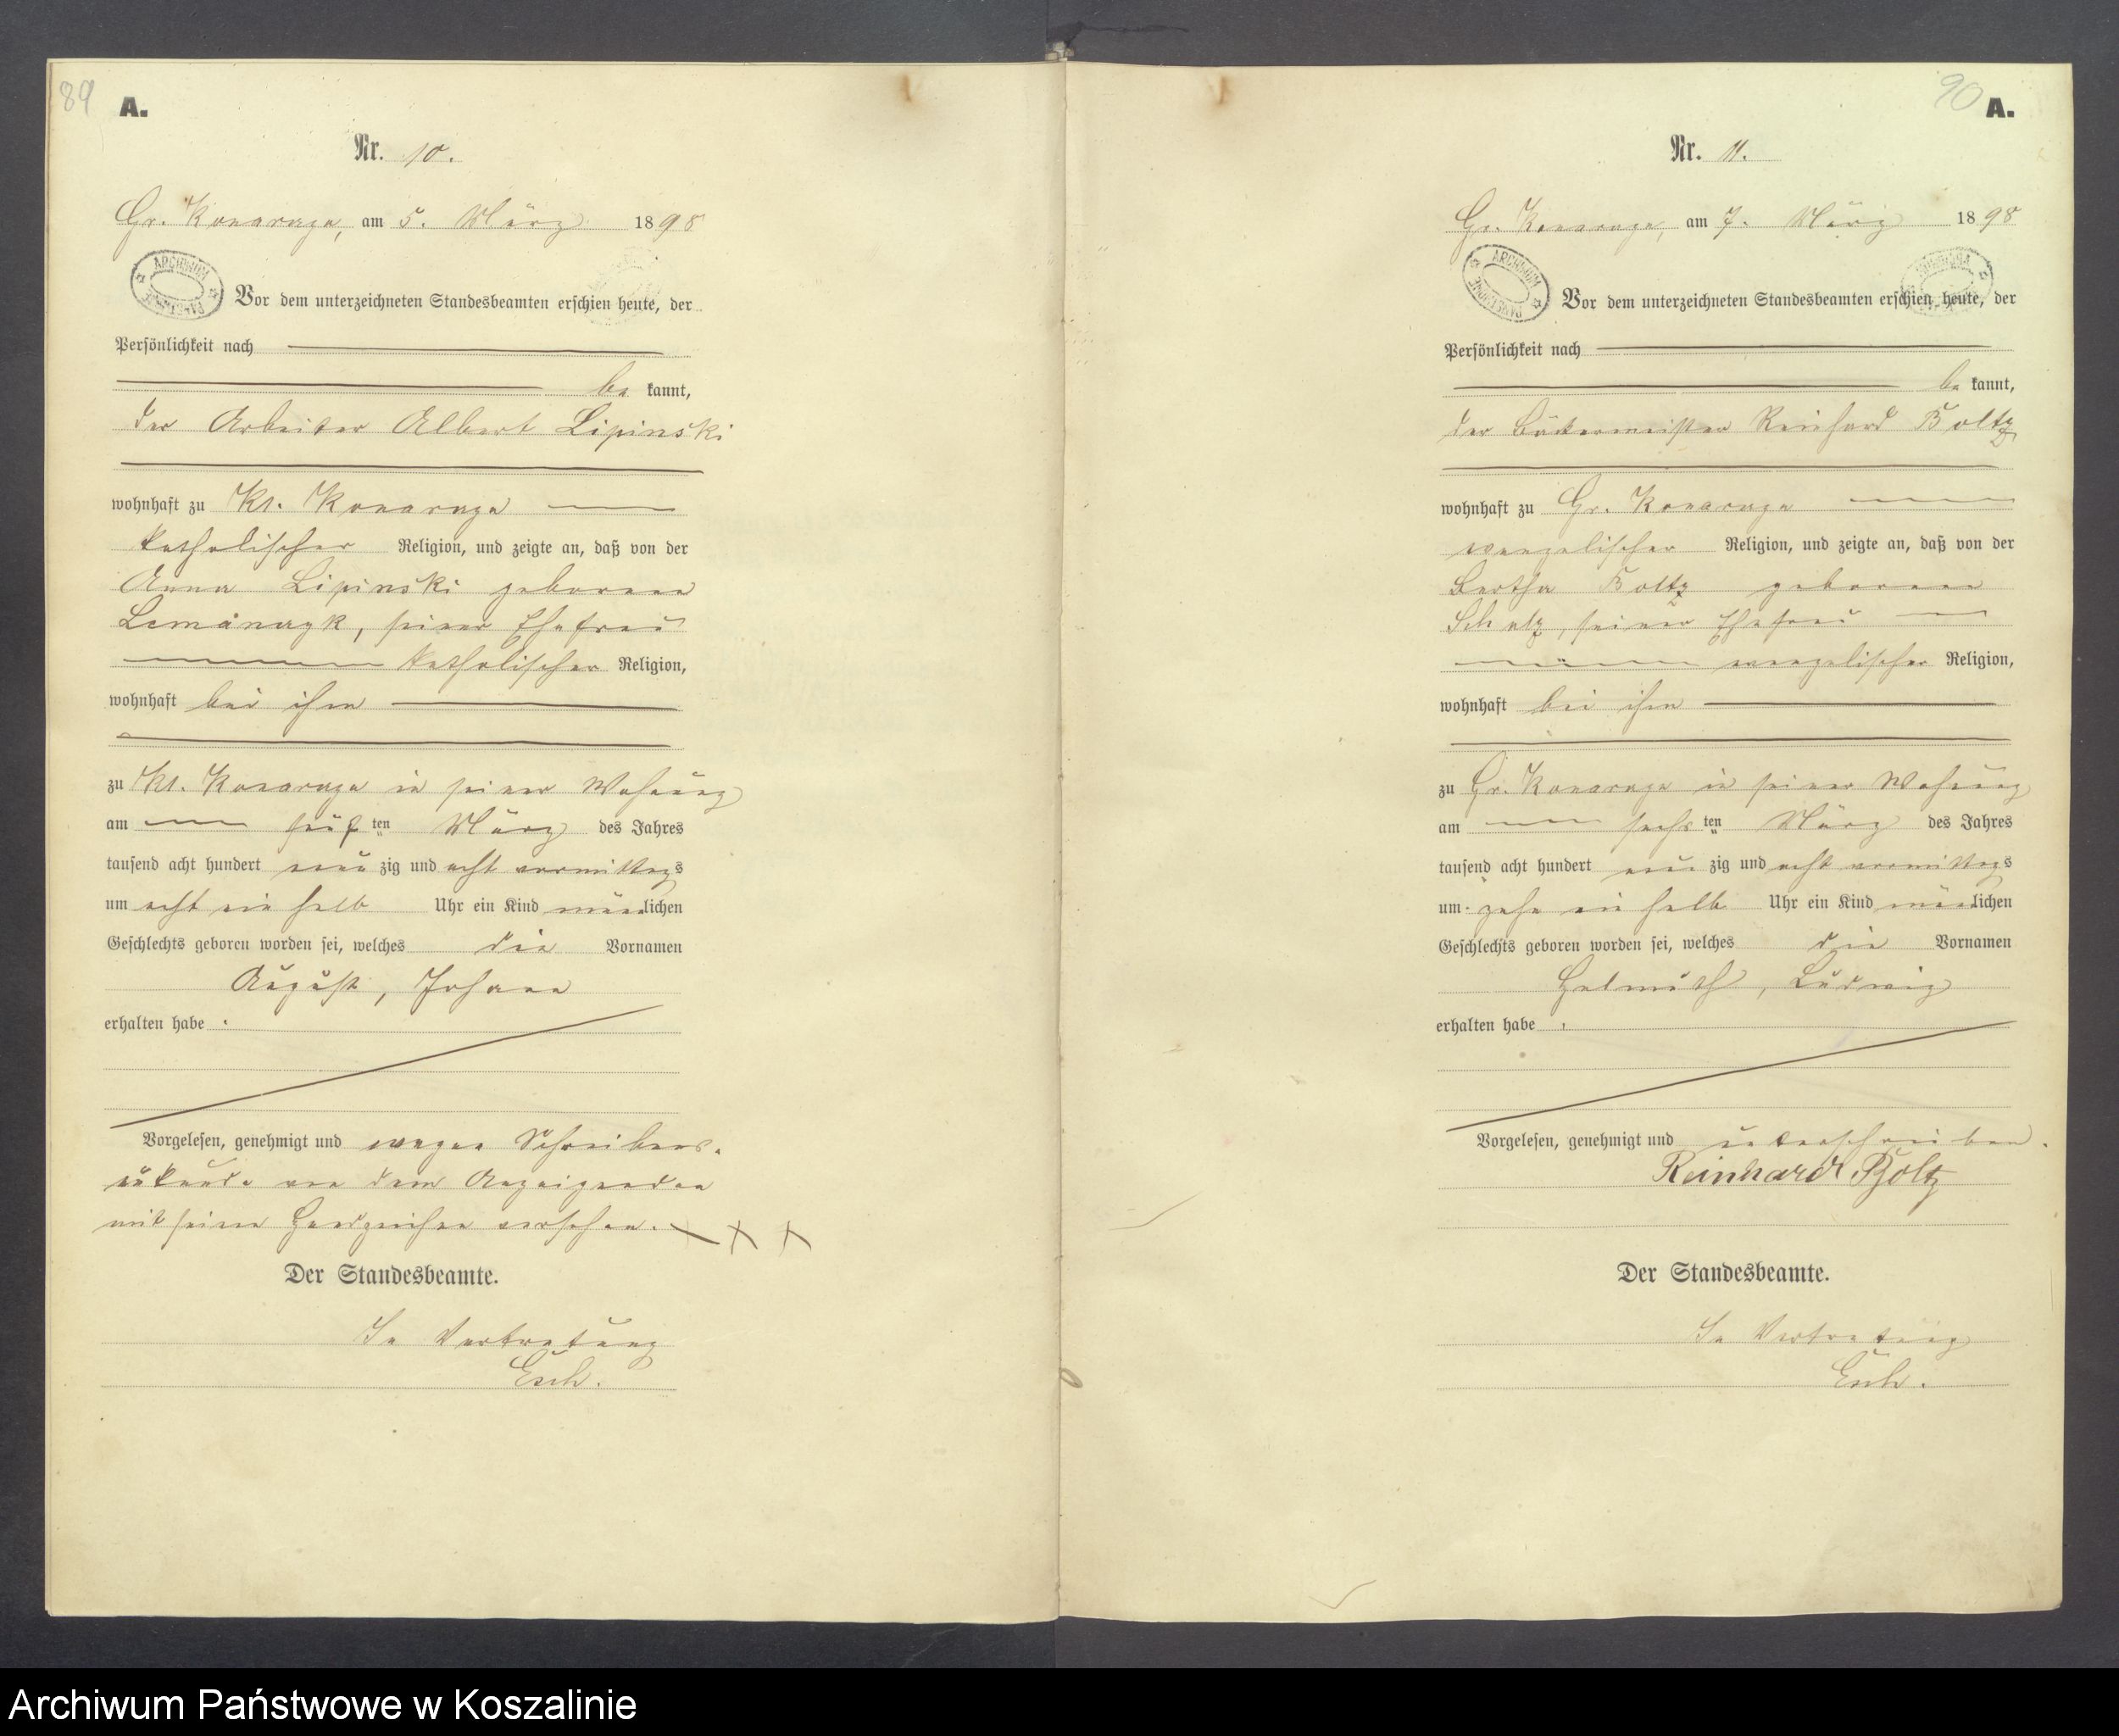 89
A.
Nr. 10.
Gr. Konarzyn, am 5. März 1898
ARCHIWUM PAŃSTWOWE
Vor dem unterzeichneten Standesbeamten erschien heute, der
Persönlichkeit nach
be kannt,
der Arbeiter Albert Lipinski
wohnhaft zu Kl. Konarzyn
katholischer Religion, und zeigte an, daß von der
Anna Lipinski geborene
seiner Ehefrau
katholischer Religion,
wohnhaft bei ihm
zu Kl. Konarzyn in seiner Wohnung
am fünften März des Jahres
tausend acht hundert neunzig und acht vormittags
um acht ein halb Uhr ein Kind männlichen
Geschlechts geboren worden sei, welches die Vornamen
August, Johann
erhalten habe.
Vorgelesen, genehmigt und wegen Schreibens-
unkunde von dem Anzeigenden
mit seinem Handzeichen versehen. + + +
Der Standesbeamte.
In Vertretung
Esch.
90
A.
Nr. 11.
Gr. Konarzyn, am 7. März 1898
ARCHIWUM PAŃSTWOWE
Vor dem unterzeichneten Standesbeamten erschien heute, der
Persönlichkeit nach
be kannt,
der Bäckermeister Reinhard Boltz
wohnhaft zu Gr. Konarzyn
evangelischer Religion, und zeigte an, daß von der
Bertha Boltz geborene
Schulz, seiner Ehefrau
evangelischer Religion,
wohnhaft bei ihm
zu Gr. Konarzyn in seiner Wohnung
am sechsten März des Jahres
tausend acht hundert neunzig und acht vormittags
um zehn ein halb Uhr ein Kind männlichen
Geschlechts geboren worden sei, welches die Vornamen
Helmuth, Ludwig
erhalten habe.
Vorgelesen, genehmigt und unterschrieben.
Reinhard Boltz
Der Standesbeamte.
In Vertretung
Esch.
Archiwum Państwowe w Koszalinie